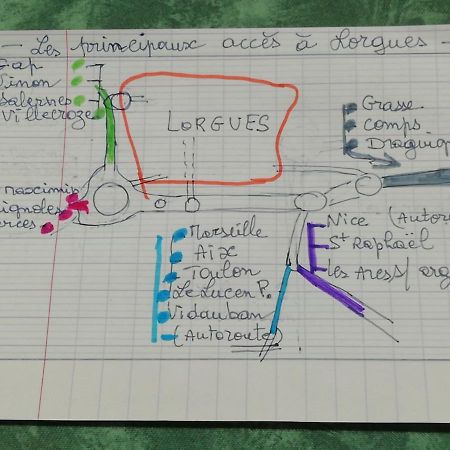 - Les principaux accès à Lorgues -
Gap
Vinon
Salernes
Villecroze
LORGUES
Grasse
Comps
Draguig
maximin
ignoles
erces
Marseille
Aix
Toulon
Le Luc en P.
Vidauban
(Autoroute)
Nice (Autoro
St Raphaël
les Arcs/arg